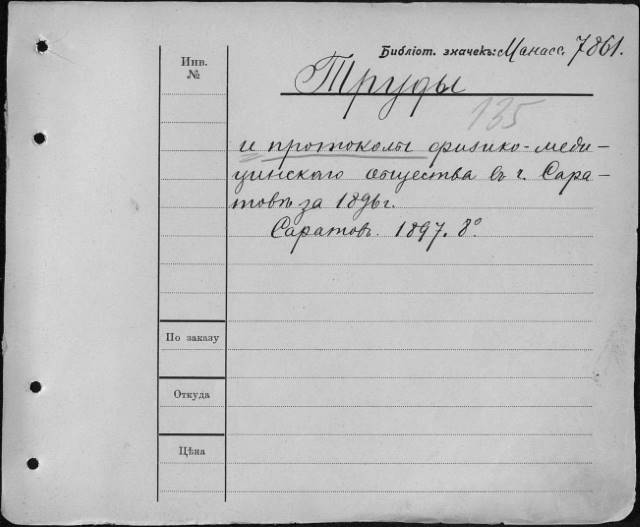 Библіот. значекъ: Манасс. 7861.
Инв.
№
Труды
135
и протоколы физико-меди-
цинскаго общества въ г. Сара-
товѣ за 1896 г.
Саратовъ. 1897. 8°.
По заказу
Откуда
Цѣна